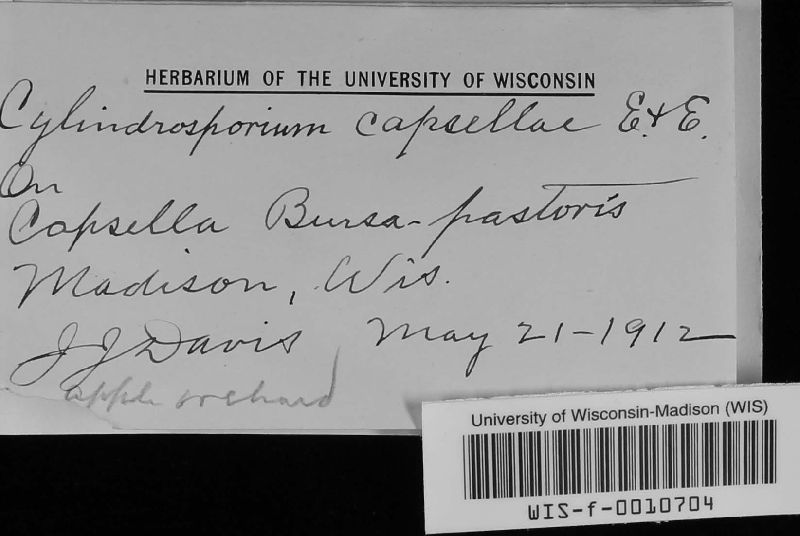 HERBARIUM OF THE UNIVERSITY OF WISCONSIN
Cylindrosporium capsellae E. & E.
On
Capsella Bursa-pastoris
Madison, Wis.
J J Davis May 21-1912
apple orchard
University of Wisconsin-Madison (WIS)
WIS-f-0010704